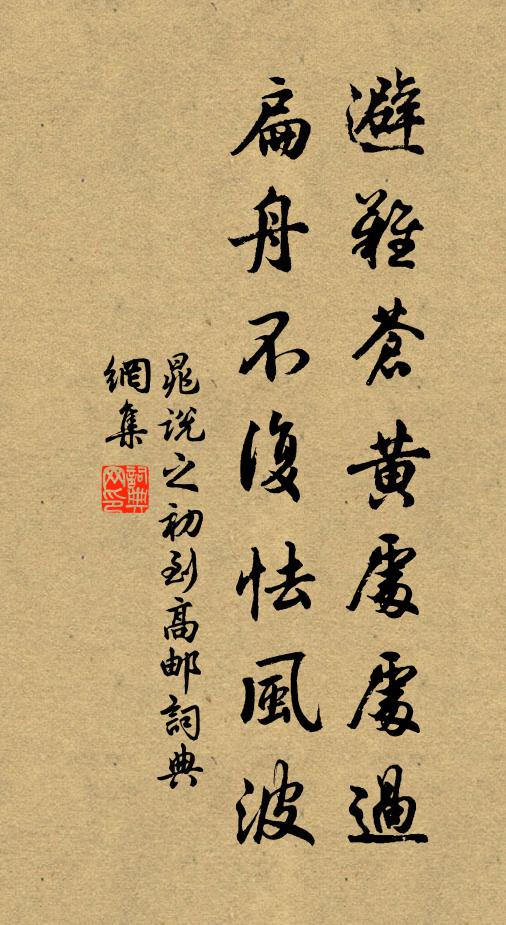 避難蒼黄處處過
扁舟不復怯風波
晁說之初到高邮詞典
網集
詞典
网印